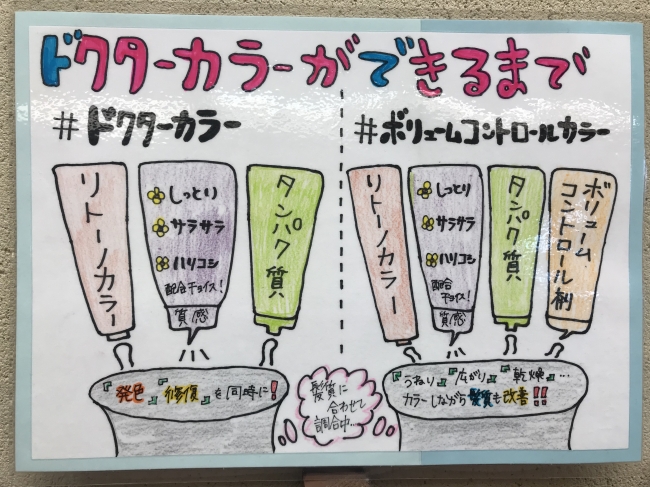 ドクターカラーができるまで
#ドクターカラー
リトーノカラー
しっとり
サラサラ
ハリコシ
配合チョイス!
質感
タンパク質
『発色』『修復』を同時に!
髪質に
合わせて
調合中…
#ボリュームコントロールカラー
リトーノカラー
しっとり
サラサラ
ハリコシ
配合
チョイス!
質感
タンパク質
ボリューム
コントロール剤
『うねり』『広がり』『乾燥』…
カラーしながら髪質も改善!!